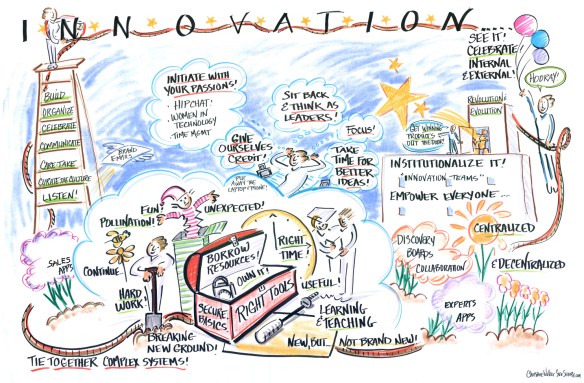 INNOVATION...
SEE IT!
CELEBRATE!
INTERNAL
& EXTERNAL!
HOORAY!
INITIATE WITH
YOUR PASSIONS!
• HIPCHAT!
• WOMEN IN
TECHNOLOGY
• TIME MGMT
SIT BACK
& THINK AS
LEADERS!
FOCUS!
GIVE
OURSELVES
CREDIT!
TAKE
TIME FOR
BETTER
IDEAS!
REVOLUTION
EVOLUTION
GET WINNING
PRODUCTS
OUT THE DOOR!
BUILD
ORGANIZE
CELEBRATE
COMMUNICATE
CARE TAKE
CURATE THE CULTURE
LISTEN!
INSTITUTIONALIZE IT!
"INNOVATION TEAMS"
EMPOWER EVERYONE...
FUN!
UNEXPECTED!
POLLINATION!
BORROW
RESOURCES!
RIGHT
TIME!
OWN IT!
RIGHT TOOLS
SECURE
BASICS.
USEFUL!
LEARNING
& TEACHING
SALES
APPS
CONTINUE...
HARD
WORK!
BREAKING
NEW GROUND!
NEW, BUT... NOT BRAND NEW!
TIE TOGETHER COMPLEX SYSTEMS!
CENTRALIZED
& DECENTRALIZED
DISCOVERY
BOARDS
COLLABORATION
EXPERTS
APPS